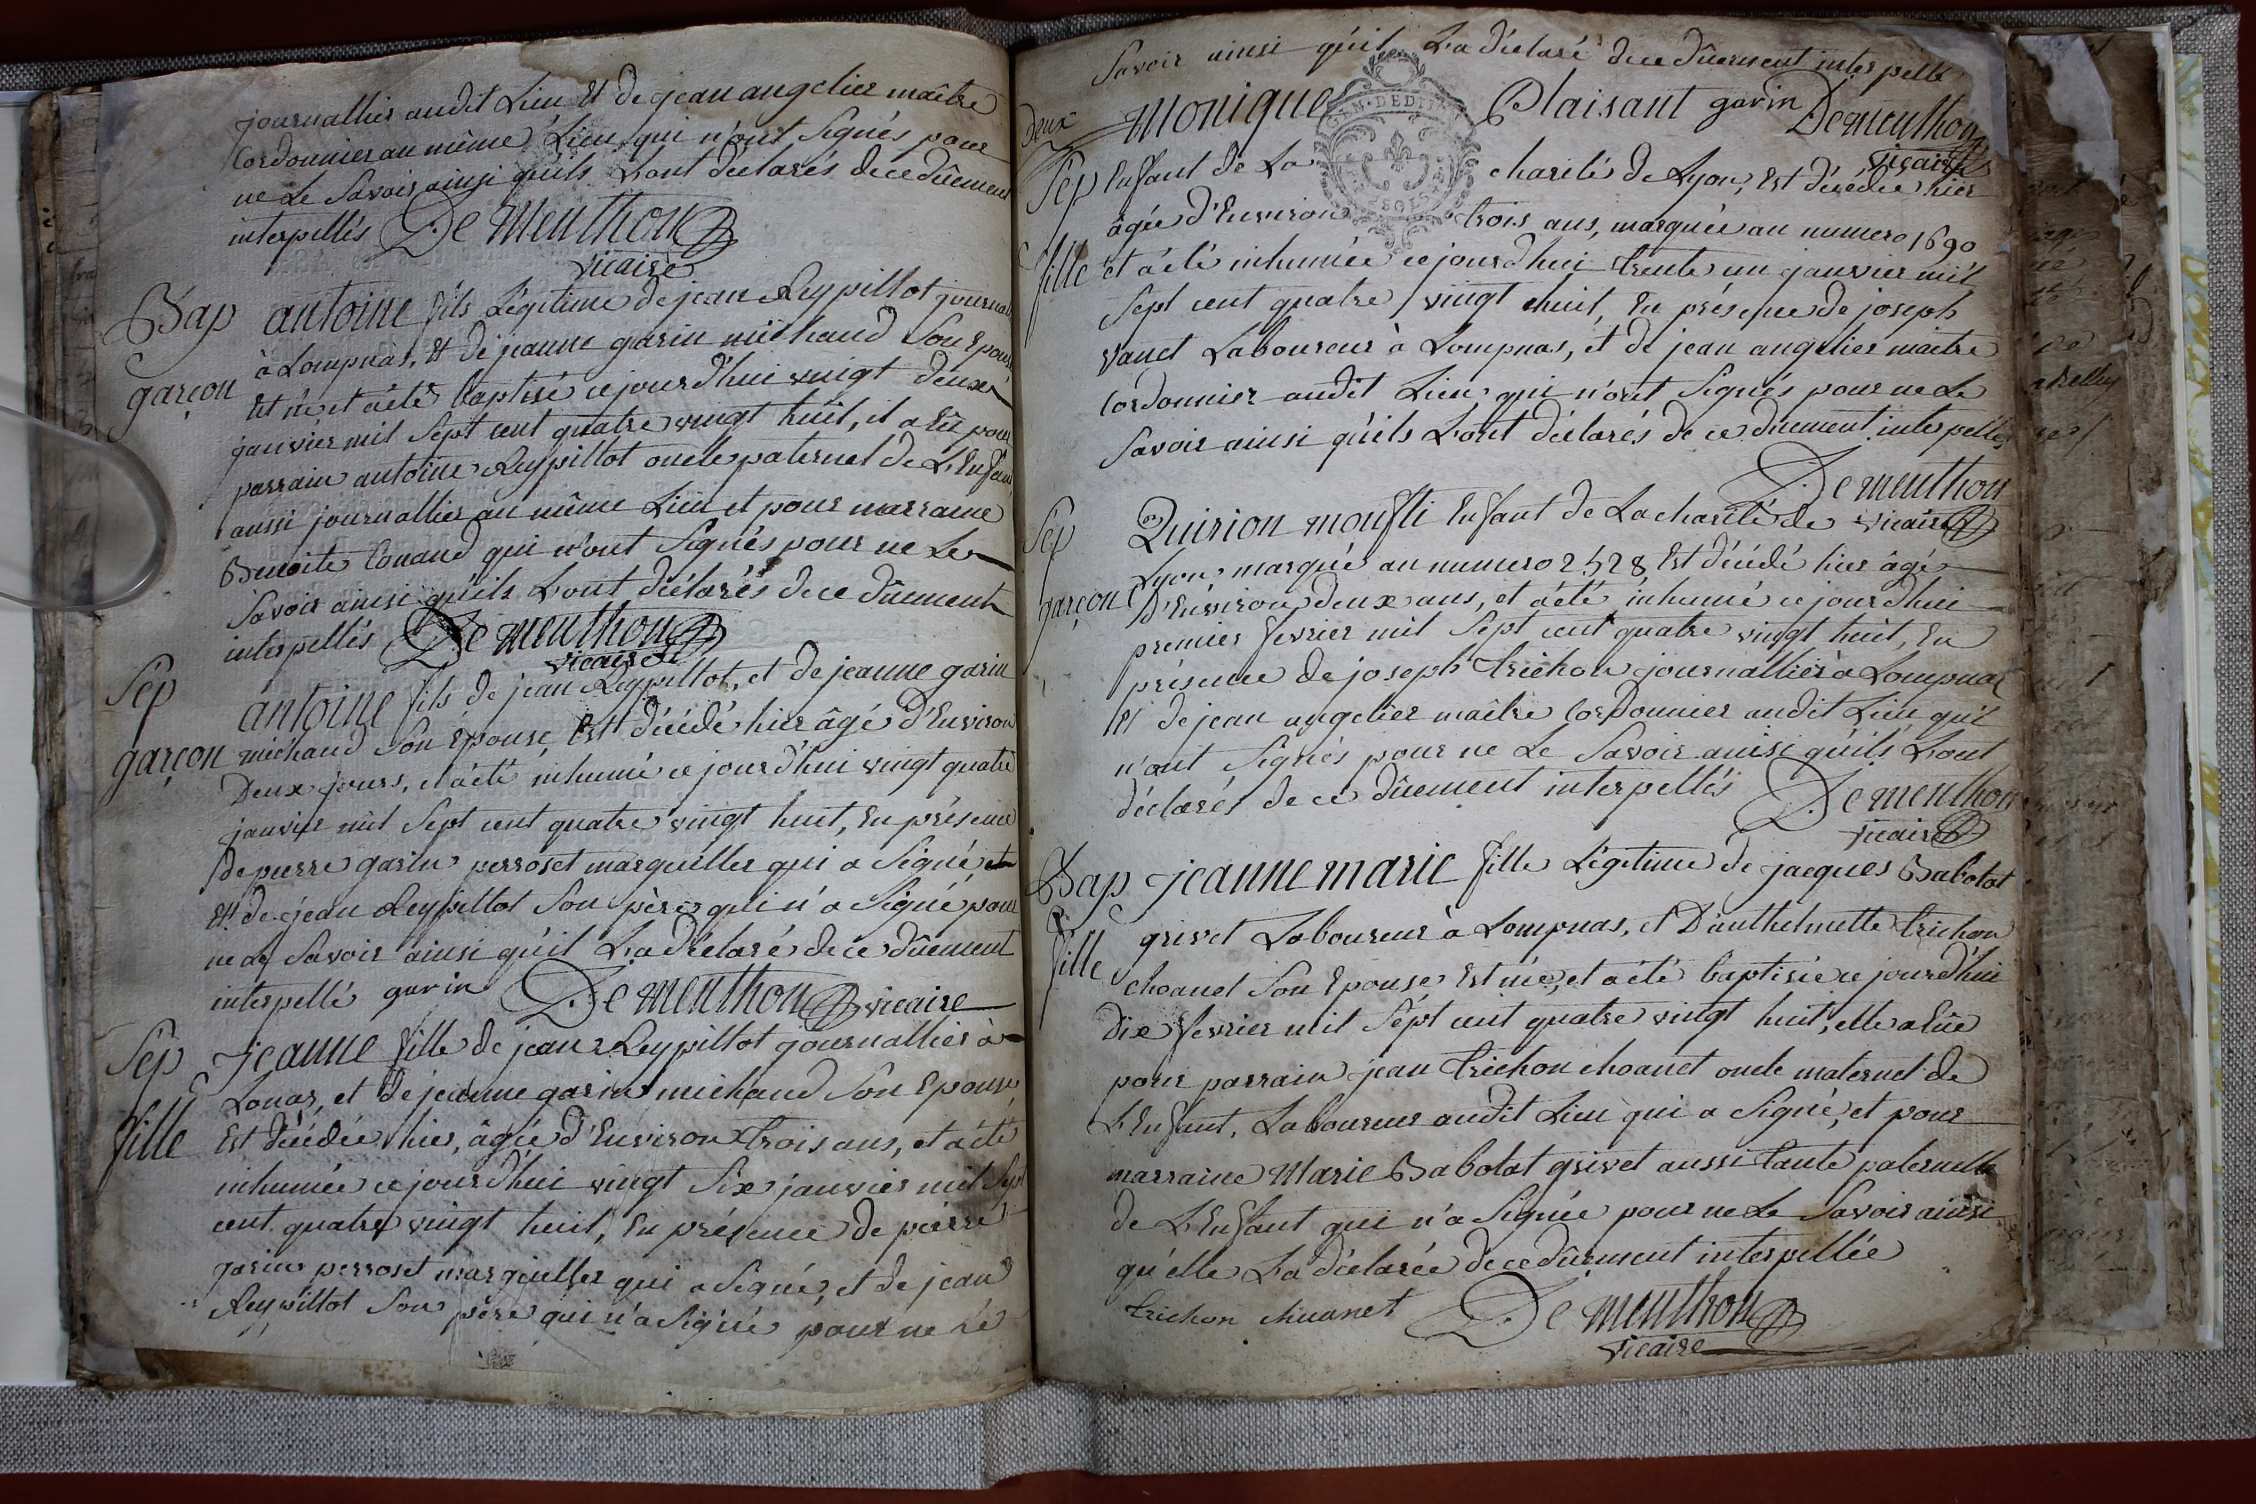 journallier audit Lieu Et de jean angelier maître
Cordonnier au même Lieu qui n'ont Signés pour
ne Le Savoir ainsi qu'ils L'ont déclarés de ce dûement
interpellés De Menthon
vicaire
Bap
garçon
antoine fils Légitime de jean Reypillot journal
à Lompnas, Et de jeanne garin michaud Son Epouse
Est né et a été baptisé ce jourd'hui vingt deux
janvier mil Sept cent quatre vingt huit, il a Eû pour
parrain antoine Reypillot oncle paternel de L'Enfant
aussi journallier au même Lieu et pour marraine
Benoite Conand qui n'ont Signés pour ne Le
Savoir ainsi qu'ils L'ont déclarés de ce dûement
interpellés De Menthon
vicaire
Sep
garçon
antoine fils de jean Reypillot, et de jeanne garin
michaud Son Epouse Est décédé hier âgé d'Environ
Deux jours, et a été inhumé ce jourd'hui vingt quatre
janvier mil Sept cent quatre vingt huit, En présence
de pierre garin perroset marguellier qui a Signé, et
Et de jean Reypillot Son père qui n'a Signé pour
ne Le Savoir ainsi qu'il L'a déclaré de ce dûement
interpellé garin De Menthon vicaire
Sep
fille
jeanne fille de jean Reypillot journallier à
Lonas, et de jeanne garin michaud Son Epouse
Est décédée hier, âgée d'Environ trois ans, et a été
inhumée ce jourd'hui vingt Six janvier mil Sept
cent quatre vingt huit, En présence de pierre
garin perroset marguellier qui a Signé, et de jean
Reypillot Son père qui n'a Signé pour ne Le
Savoir ainsi qu'il L'a déclaré de ce dûement interpellé
garin De Menthon
vicaire
deux
Sep
fille
Monique Plaisant
Enfant de La charité de Lyon, Est décédée hier
âgée d'Environ trois ans, marquée au numero 1690
et a été inhumée ce jourd'hui trente un janvier mil
Sept cent quatre vingt huit, En présence de joseph
vanet Laboureur à Lompnas, et de jean angelier maître
Cordonnier audit Lieu qui n'ont Signés pour ne Le
Savoir ainsi qu'ils L'ont déclarés de ce dûement interpellés
De Menthon
vicaire
Sep
garçon
Quirion moufli Enfant de La charité de
Lyon, marqué au numero 2528 Est décédé hier âgé
D'Environ deux ans, et a été inhumé ce jourd'hui
premier fevrier mil Sept cent quatre vingt huit, En
présence de joseph trichon journallier à Lompnas
Et de jean angelier maître Cordonnier audit Lieu qui
n'ont Signés pour ne Le Savoir ainsi qu'ils L'ont
déclarés de ce dûement interpellés De Menthon
vicaire
Bap
fille
jeanne marie fille Légitime de jacques Babolat
grivet Laboureur à Lompnas, et D'anthelmette trichon
choanet Son Epouse Est née, et a été baptisée ce jourd'hui
dix fevrier mil Sept cent quatre vingt huit, elle a Eûe
pour parrain jean trichon choanet oncle maternel de
L'Enfant, Laboureur audit Lieu qui a Signé, et pour
marraine Marie Babolat grivet aussi tante paternelle
de L'Enfant qui n'a Signée pour ne Le Savoir ainsi
qu'elle L'a déclarée de ce dûement interpellée
trichon chuanet De Menthon
vicaire